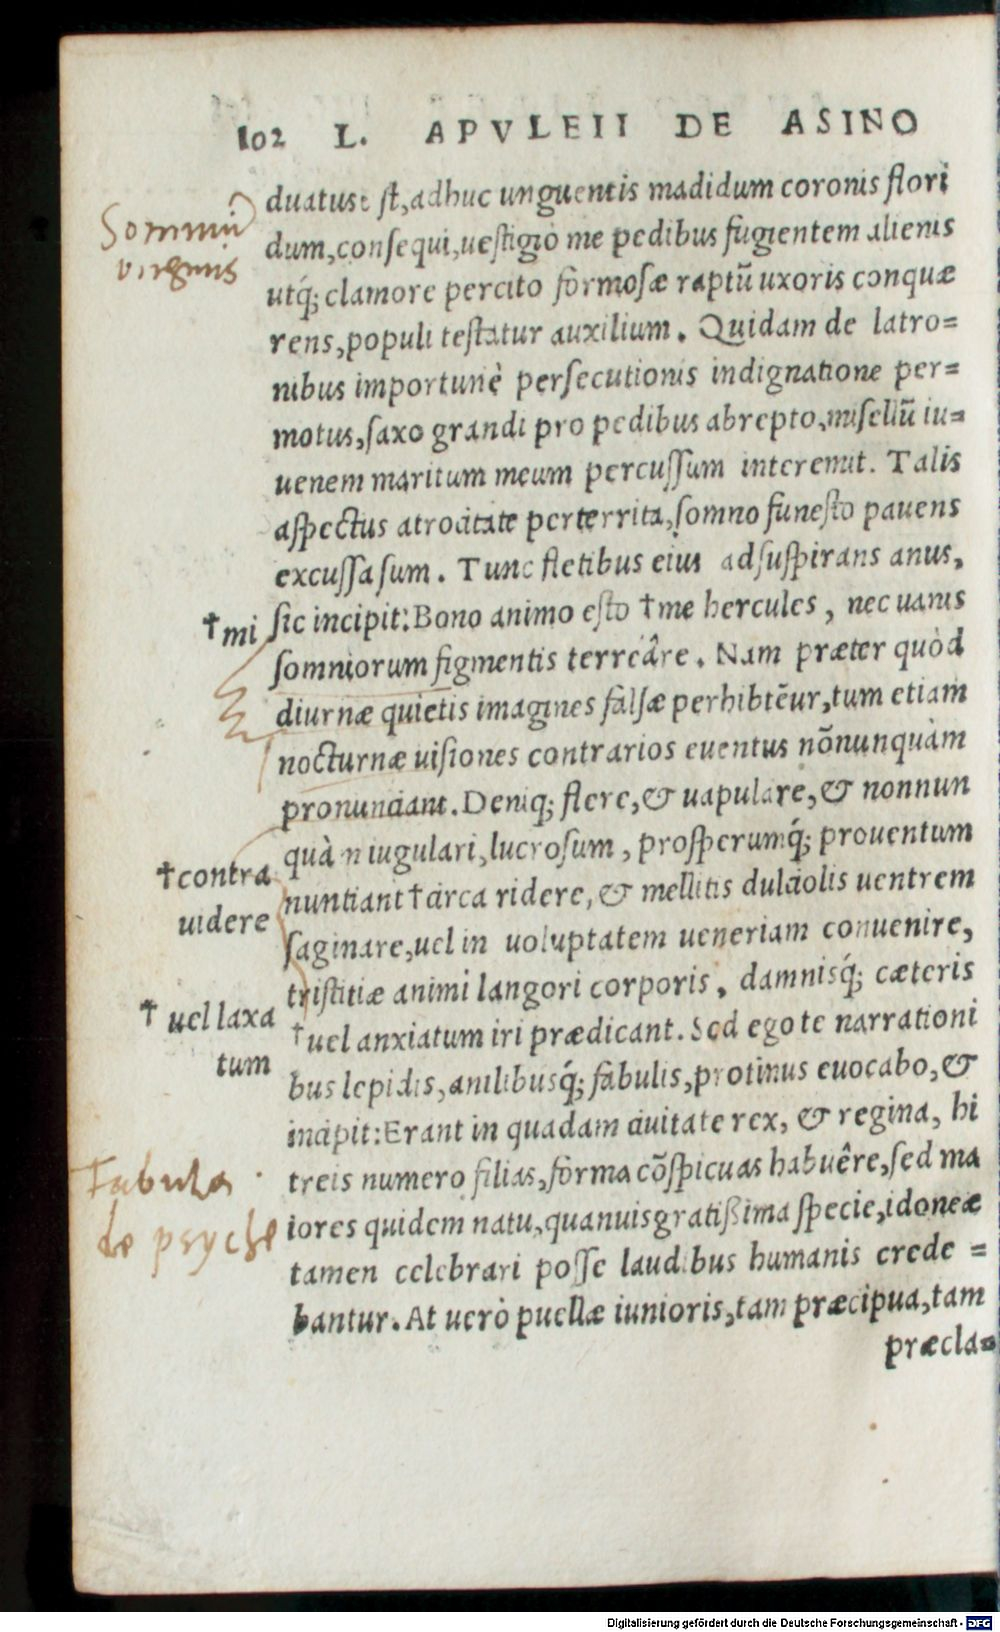 102 L. APVLEII DE ASINO
Somniũ
virginis
duatus st, adhuc unguentis madidum coronis flori
dum, consequi, uestigio me pedibus fugientem alienis
utq́; clamore percito formosæ raptũ uxoris conquæ
rens, populi testatur auxilium. Quidam de latro=
nibus importunè persecutionis indignatione per=
motus, saxo grandi pro pedibus abrepto, misellũ iu=
uenem maritum meum percussum interemit. Talis
aspectus atrocitate perterrita, somno funesto pauens
excussa sum. Tunc fletibus eius adsuspirans anus,
†mi
sic incipit: Bono animo esto †me hercules, nec uanis
somniorum figmentis terreâre. Nam præter quòd
diurnæ quietis imagines falsæ perhibtẽur, tum etiam
nocturnæ uisiones contrarios euentus nõnunquàm
pronunciant. Deniq; flere, & uapulare, & nonnun
quàm iugulari, lucrosum, prosperumq́; prouentum
†contra
uidere
nuntiant †circa ridere, & mellitis dulciolis uentrem
saginare, uel in uoluptatem ueneriam conuenire,
tristitiæ animi langori corporis, damnisq́; cæteris
† uel laxa
tum
†uel anxiatum iri prædicant. Sed ego te narrationi
bus lepidis, anilibusq́; fabulis, protinus euocabo, &
incipit: Erant in quadam ciuitate rex, & regina, hi
treis numero filias, forma cõspicuas habuêre, sed ma
Fabula
de psyche
iores quidem natu, quanuis gratißima specie, idoneæ
tamen celebrari posse laudibus humanis crede =
bantur. At uerò puellæ iunioris, tam præcipua, tam
præcla=
Digitalisierung gefördert durch die Deutsche Forschungsgemeinschaft - DFG